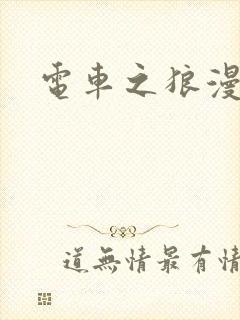 電車之狼漫
道無情最有情